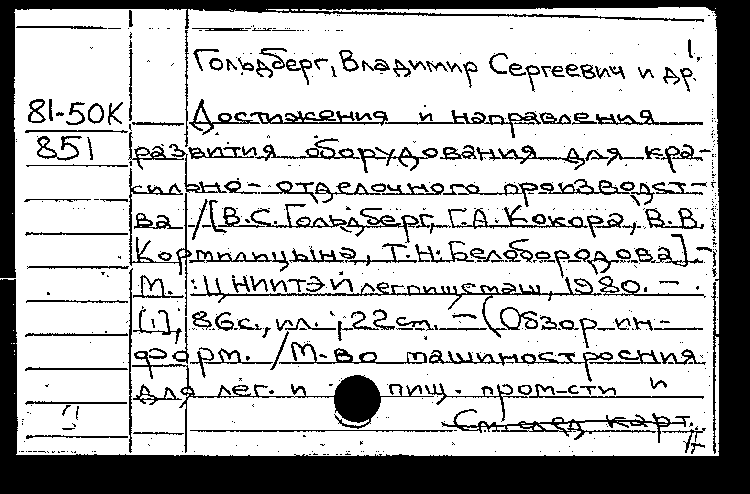 1.
Гольдберг, Владимир Сергеевич и др.
81-50К
851
Достижения и направления
развития оборудования для кра-
сильно-отделочного производст-
ва /[В.С. Гольдберг, Г.А. Кокора, В.В.
Кормилицына, Т.Н. Белобородова].-
М. : ЦНИИТЭИлегпищемаш, 1980. -
[1], 86с., ил. ; 22 ст. - (Обзор ин-
форм. / М-во машиностроения
для лег. и пищ. пром-сти и
См. след. карт.